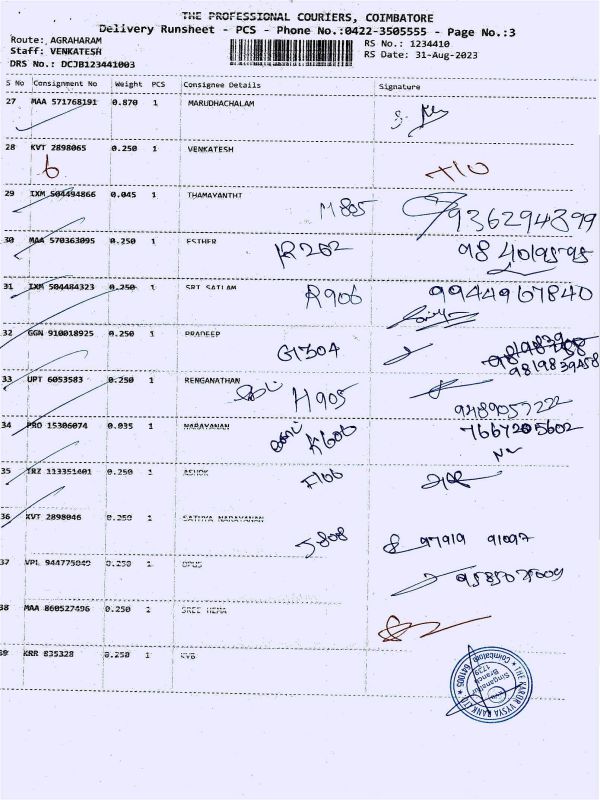 THE PROFESSIONAL COURIERS, COIMBATORE
Delivery Runsheet - PCS - Phone No.:0422-3505555 - Page No.:3
Route: AGRAHARAM
RS No.: 1234410
Staff: VENKATESH
RS Date: 31-Aug-2023
DRS No.: DCJB123441003
S No Consignment No Weight PCS Consignee Details Signature
27 MAA 571768191 0.870 1 MARUDHACHALAM
28 KVT 2898065 0.250 1 VENKATESH
29 IXM 504494866 0.045 1 THAMAYANTHT
M 805 9362294899
30 MAA 570363095 0.250 1 ESTHER
R 202 98 40195795
31 IXM 504484323 0.250 1 SRI SAILAM
R906 9944967840
32 GGN 910018925 0.250 1 PRADEEP
G1304
9819839458
33 UPT 6053583 0.250 1 RENGANATHAN
H905 9489057222
34 PRO 15306074 0.035 1 NARAYANAN
K606 7667205602
35 TRZ 113351401 0.250 1 ASHOK
F106
36 KVT 2898046 0.250 1 SATHYA NARAYANAN
J808 97919 91097
37 VPL 944775049 0.250 1 OPUS
38 MAA 860527496 0.250 1 SREE HEMA
39 KRR 835328 0.250 1 KVB
THE KARUR VYSYA BANK LTD
Singanallur
Branch
1739
Coimbatore 641005